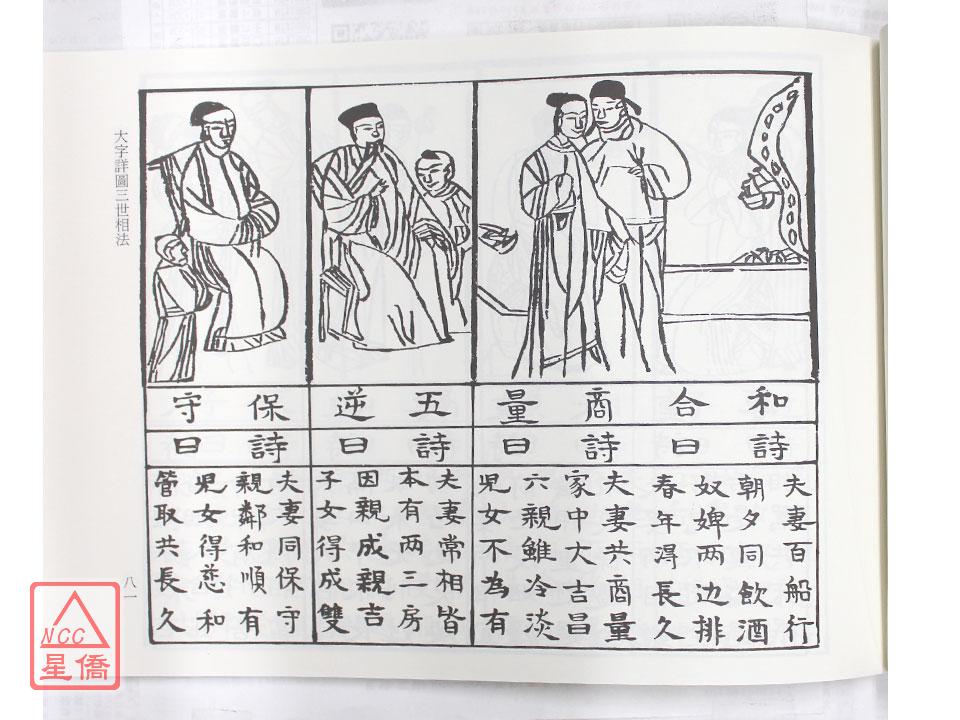 和合商量
詩曰
夫妻百船行
朝夕同飲酒
奴婢两边排
春年得長久
詩曰
夫妻共商量
家中大吉昌
六親雖冷淡
児女不為有
五逆
詩曰
夫妻常相皆
本有两三房
因親成親吉
子女得成雙
保守
詩曰
夫妻同保守
親鄰和順有
児女得慈和
管取共長久
大字詳圖三世相法
八一
NCC
星僑